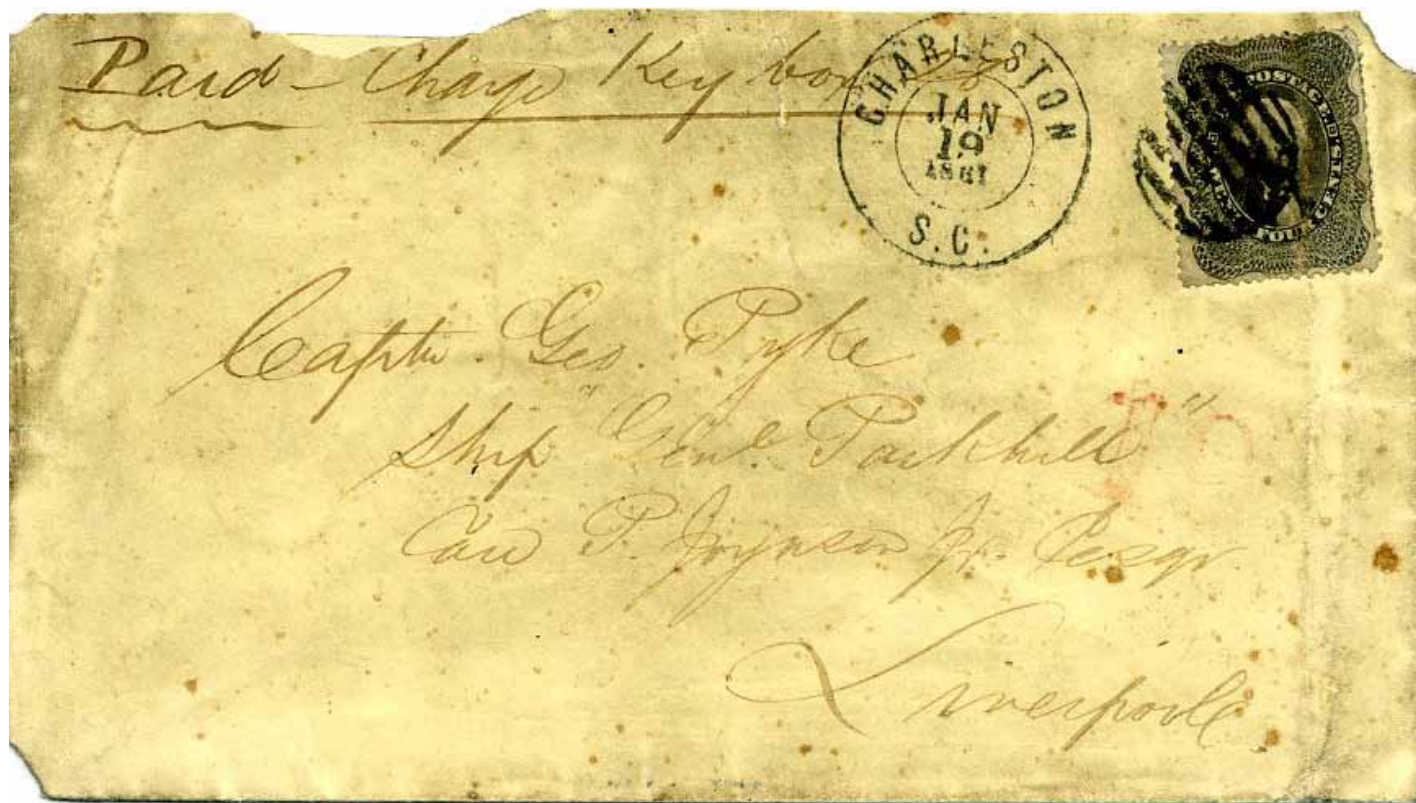 Paid - Charge Key box
CHARLESTON
JAN
19
1861
S.C.
POSTAGE
FOUR
Captn. Geo. Pyke
Ship "Genl. Parkhill"
Care P. Joynson Jr. Esqr.
Liverpool